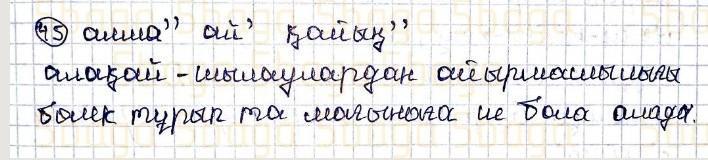 45 алма" ай' қайың"
алақай - шылаулардан айырмашылығы
бөлек тұрып та мағынаға ие бола алады.